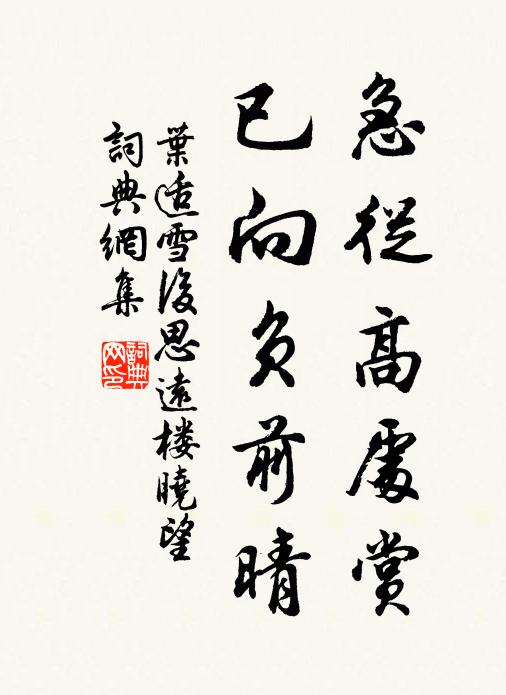 急從高處賞
已向負前晴
葉適雪後思遠楼曉望
詞典網集
詞典網印